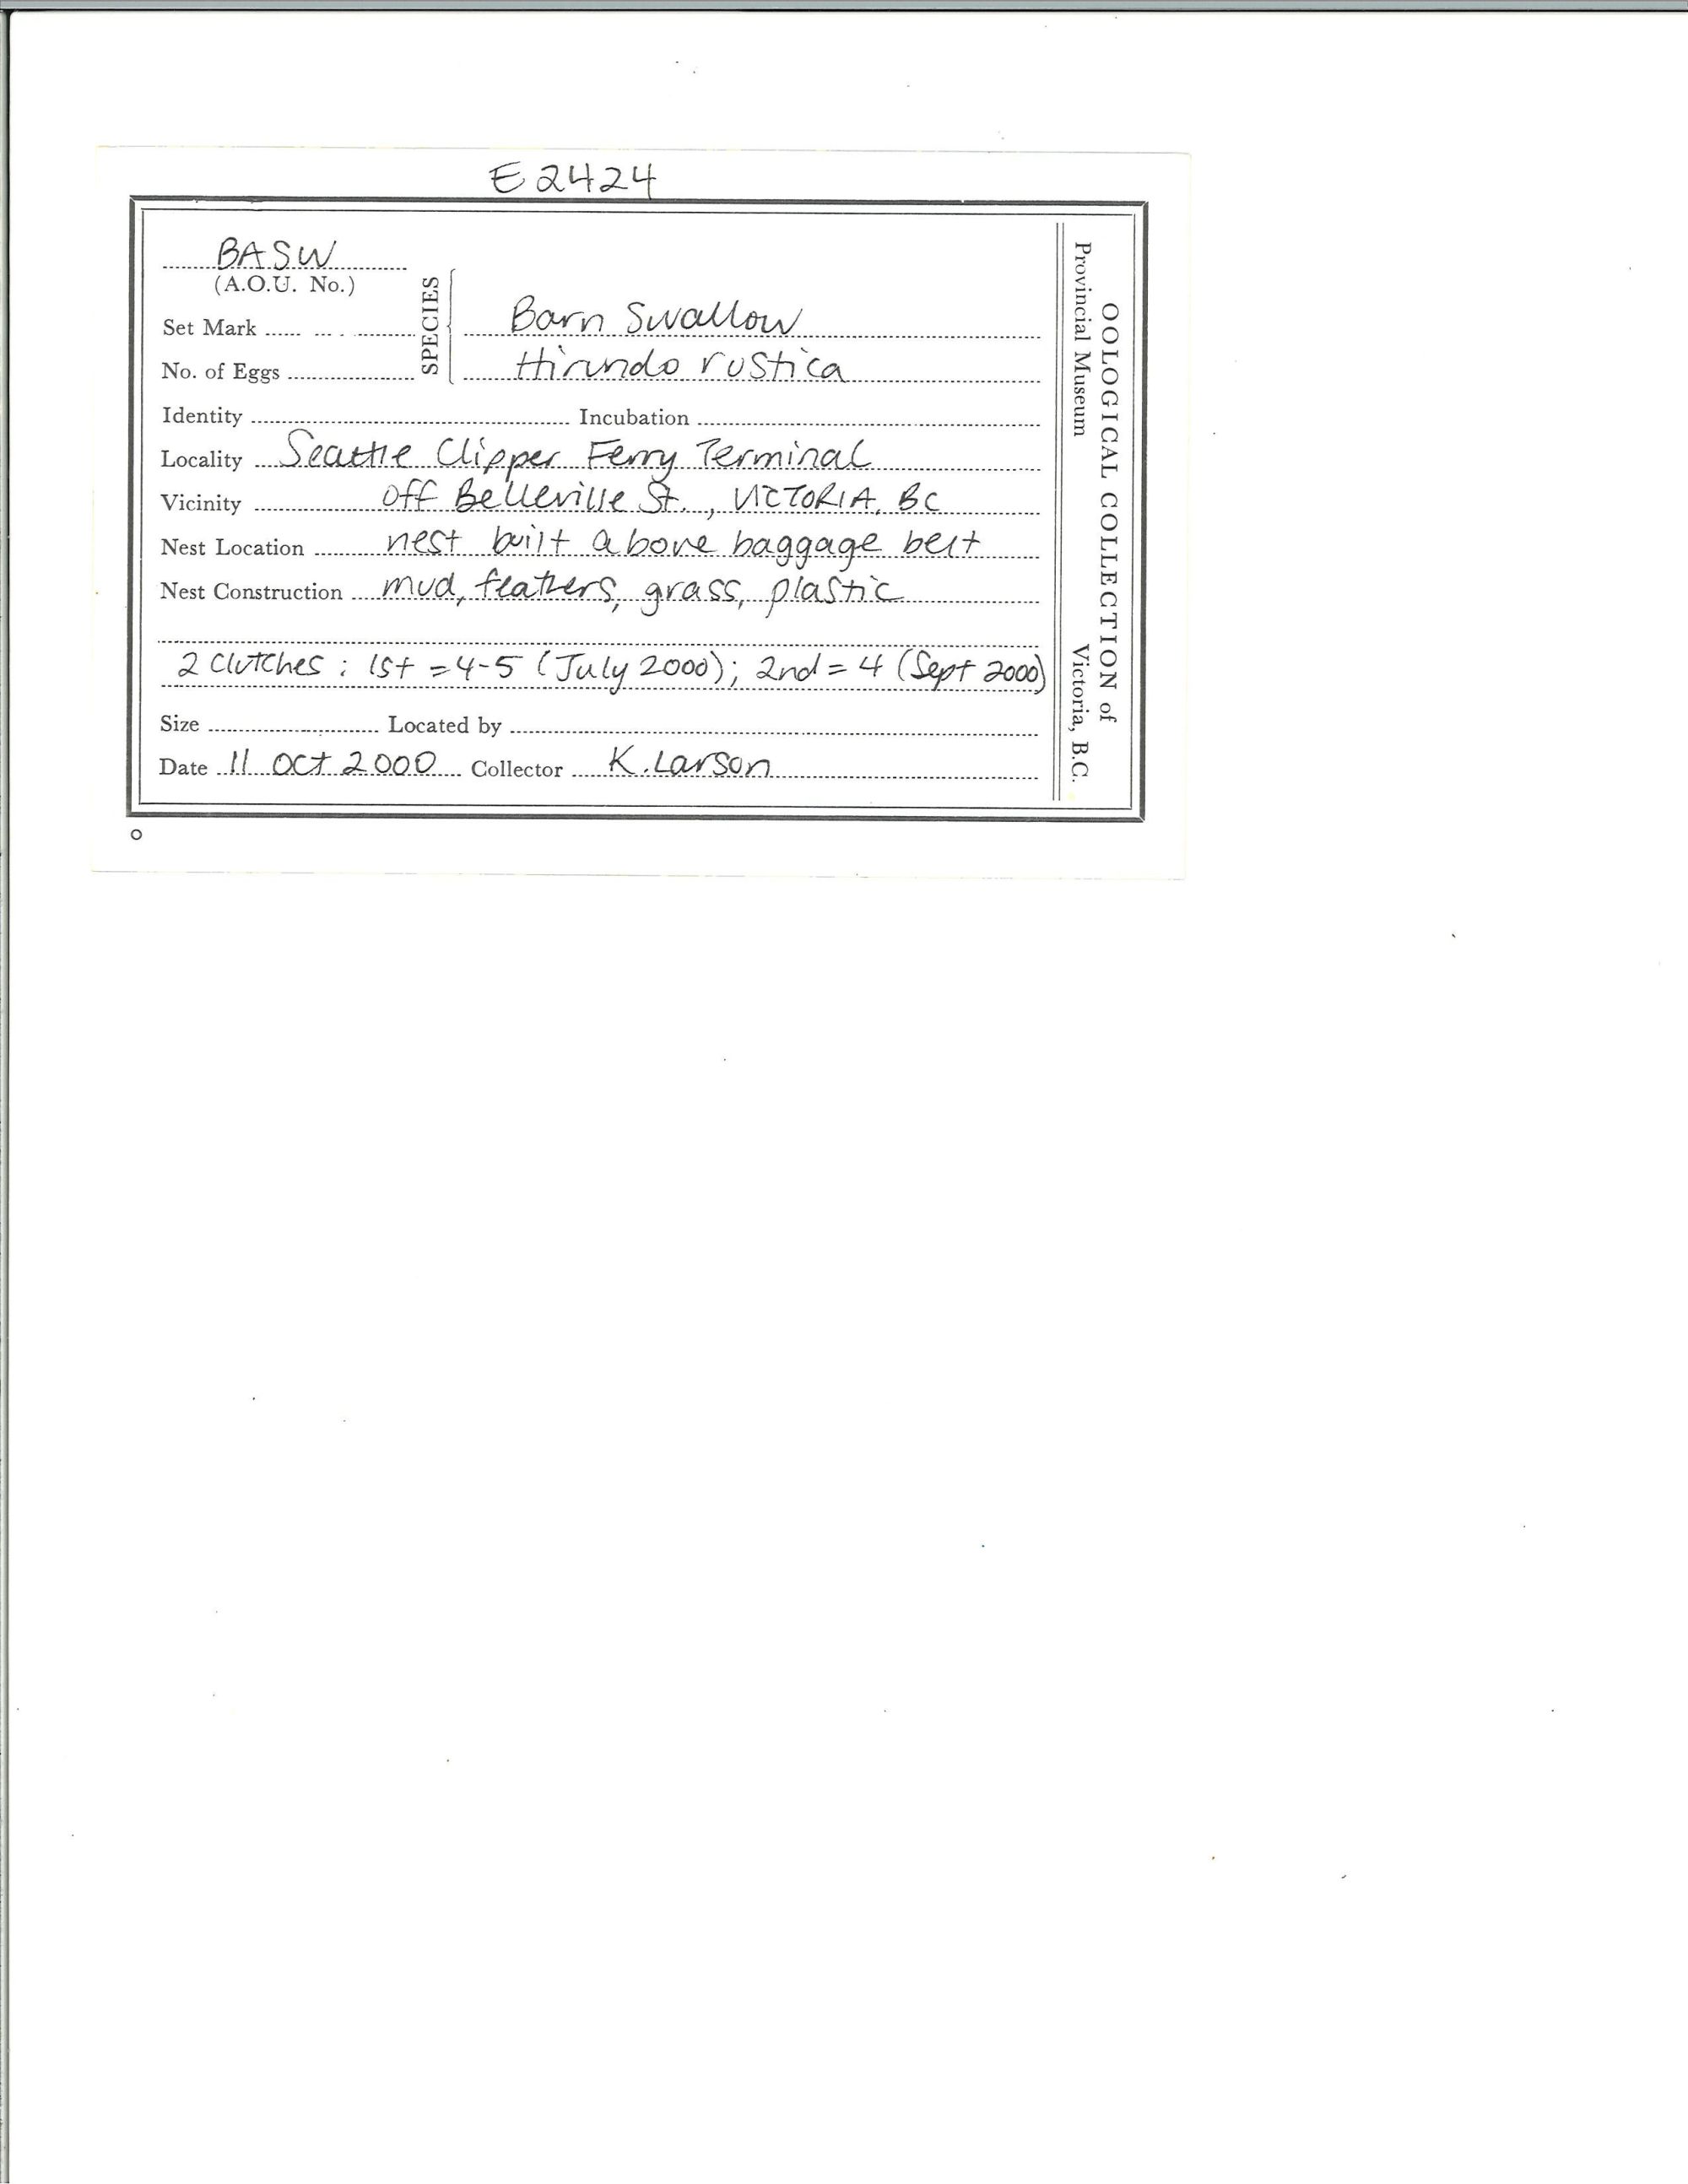 E2424
BASW
(A.O.U. No.)
SPECIES
Set Mark
Barn Swallow
No. of Eggs
Hirundo rustica
Identity Incubation
Locality Seattle Clipper Ferry Terminal
Vicinity off Belleville St., VICTORIA, BC
Nest Location nest built above baggage belt
Nest Construction mud, feathers, grass, plastic
2 clutches : 1st = 4-5 (July 2000); 2nd = 4 (Sept 2000)
Size Located by
Date 11 Oct 2000 Collector K. Larson
OOLOGICAL COLLECTION of
Provincial Museum Victoria, B.C.